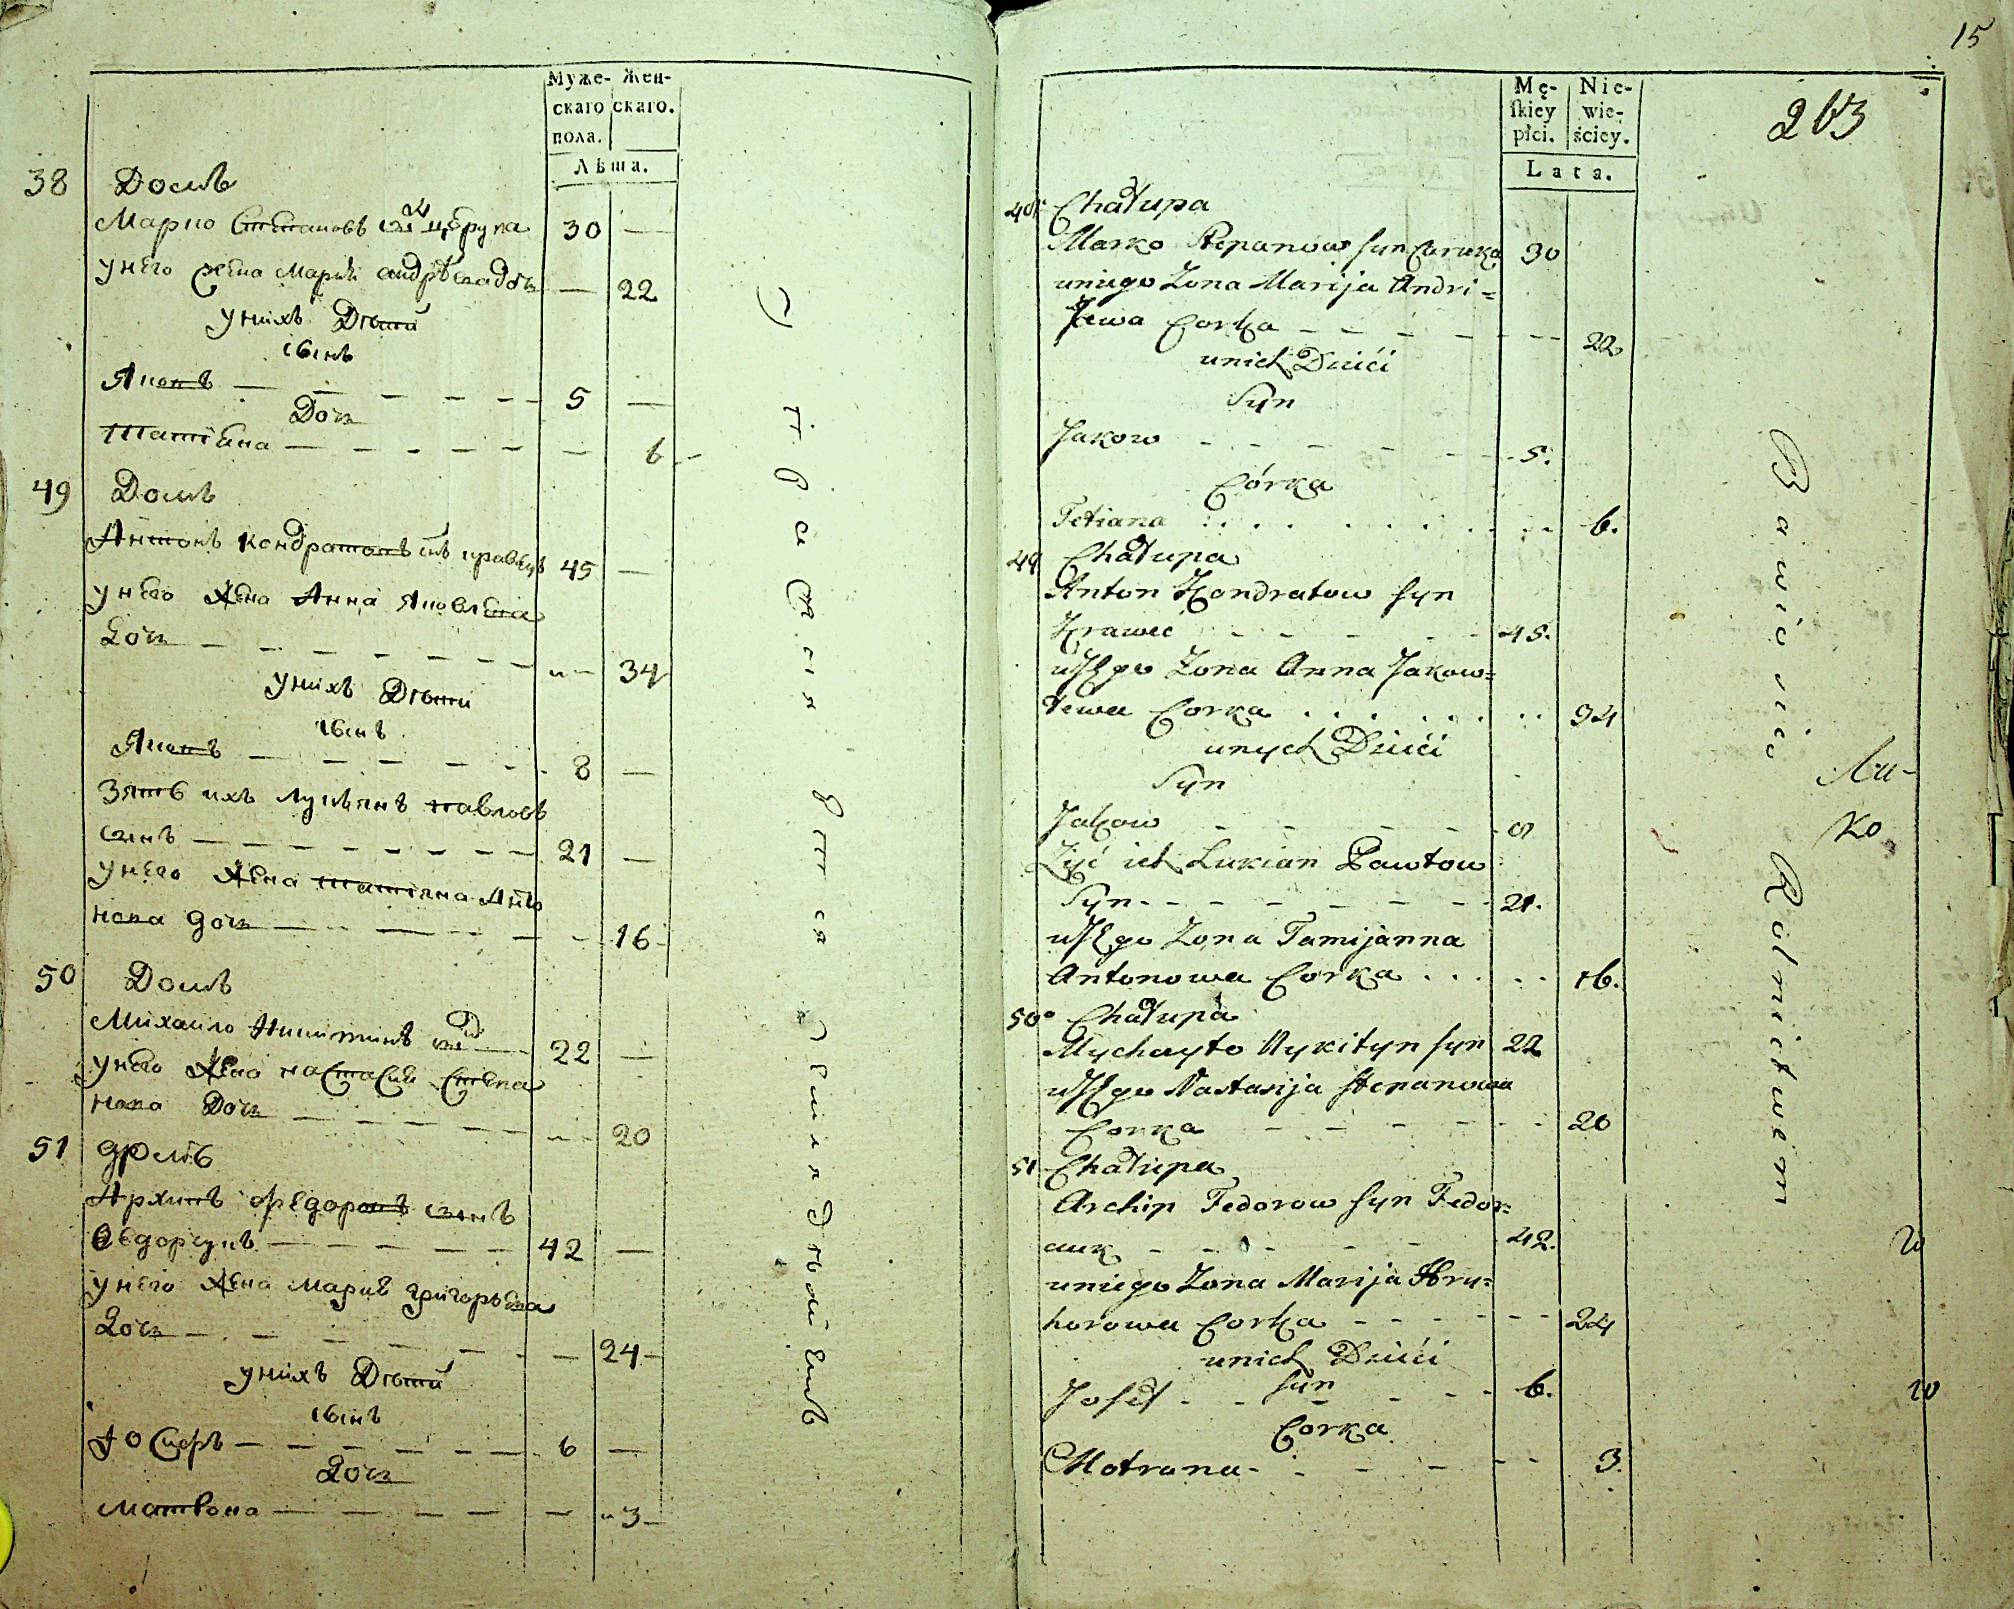 Муже-
скаго
пола.
Жен-
скаго.
Лѣта.
38 Домъ
Марко Степановъ снъ Цебрука 30
унего жена Марія андрѣева дочь 22
унихъ Дѣти
сынъ
Яковъ 5
Дочь
Татіана 6
49 Домъ
Антонъ Кондратовъ снъ кравецъ 45
унего жена Анна Яковлева
Дочь 34
унихъ Дѣти
сынъ
Яковъ 8
Зять ихъ Лукьянъ павловъ
сынъ 21
унего жена татіяна Анто
нова дочь 16
50 Домъ
Михаило Никитинъ 22
унего жена настасія Степа
нова Дочь 20
51 домъ
Архипъ федоровъ сынъ
Федорчукъ 42
унего жена Марія григорьева
Дочь 24
унихъ Дѣти
сынъ
Іосифъ 6
Дочь
Матрона 3
15
263
Mę-
skiey
płci.
Nie-
wie-
ściey.
Lata.
Chałupa
Marko Stepanow syn 30
uniego Zona Marija Andri=
Jewa Corka 22
unich Dzieći
Syn
Jakow 5.
Córka
Tetiana 6.
49 Chałupa
Anton Kondratow syn
Krawec 45.
uJego Zona Anna Jakow=
lewa Corka 34
unych Dzieći
Syn
Jakow 8
Zyć ich Lukian Pawłow
Syn 21.
uJego Zona Tamijanna
Antonowa Corka 16.
50 Chałupa
Mychayło Nykityn syn 22
uJego Nastasija Stepanowa
Corka 20
51 Chałupa
Archip Fedorow syn Fedor=
cuk 42.
uniego Zona Marija Hry=
horowa Corka 24
unich Dzieći
syn
Josef 6.
Corka
Motruna 3.
Bawią się Rolnictwem